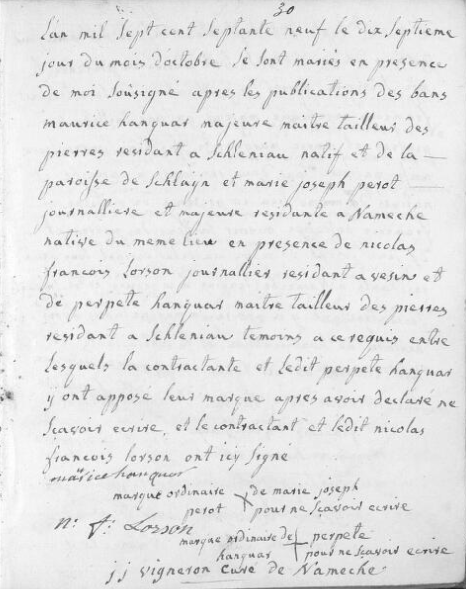 30
L'an mil sept cent septante neuf le dix septieme
jour du mois d'octobre se sont mariés en presence
de moi soûsigné apres les publications des bans
maurice hanquar majeure maitre tailleur des
pierres residant a Schleniau natif et de la
paroisse de Schlayn et marie joseph perot
journalliere et majeure residante a Nameche
native du meme lieu en presence de nicolas
francois Lorson journallier residant a vesin et
de perpete hanquar maitre tailleur des pierres
residant a Schleniau temoins a ce requis entre
lesquels la contractante et ledit perpete hanquar
y ont apposé leur marque apres avoir declare ne
sçavoir ecrire, et le contractant et ledit nicolas
francois lorson ont icy signé
maurice hanquar
marque ordinaire X de marie joseph
perot pour ne sçavoir ecrire
n: f: Lorson
marque ordinaire de + perpete
hanquar pour ne sçavoir ecrire
j j vigneron curé de Nameche